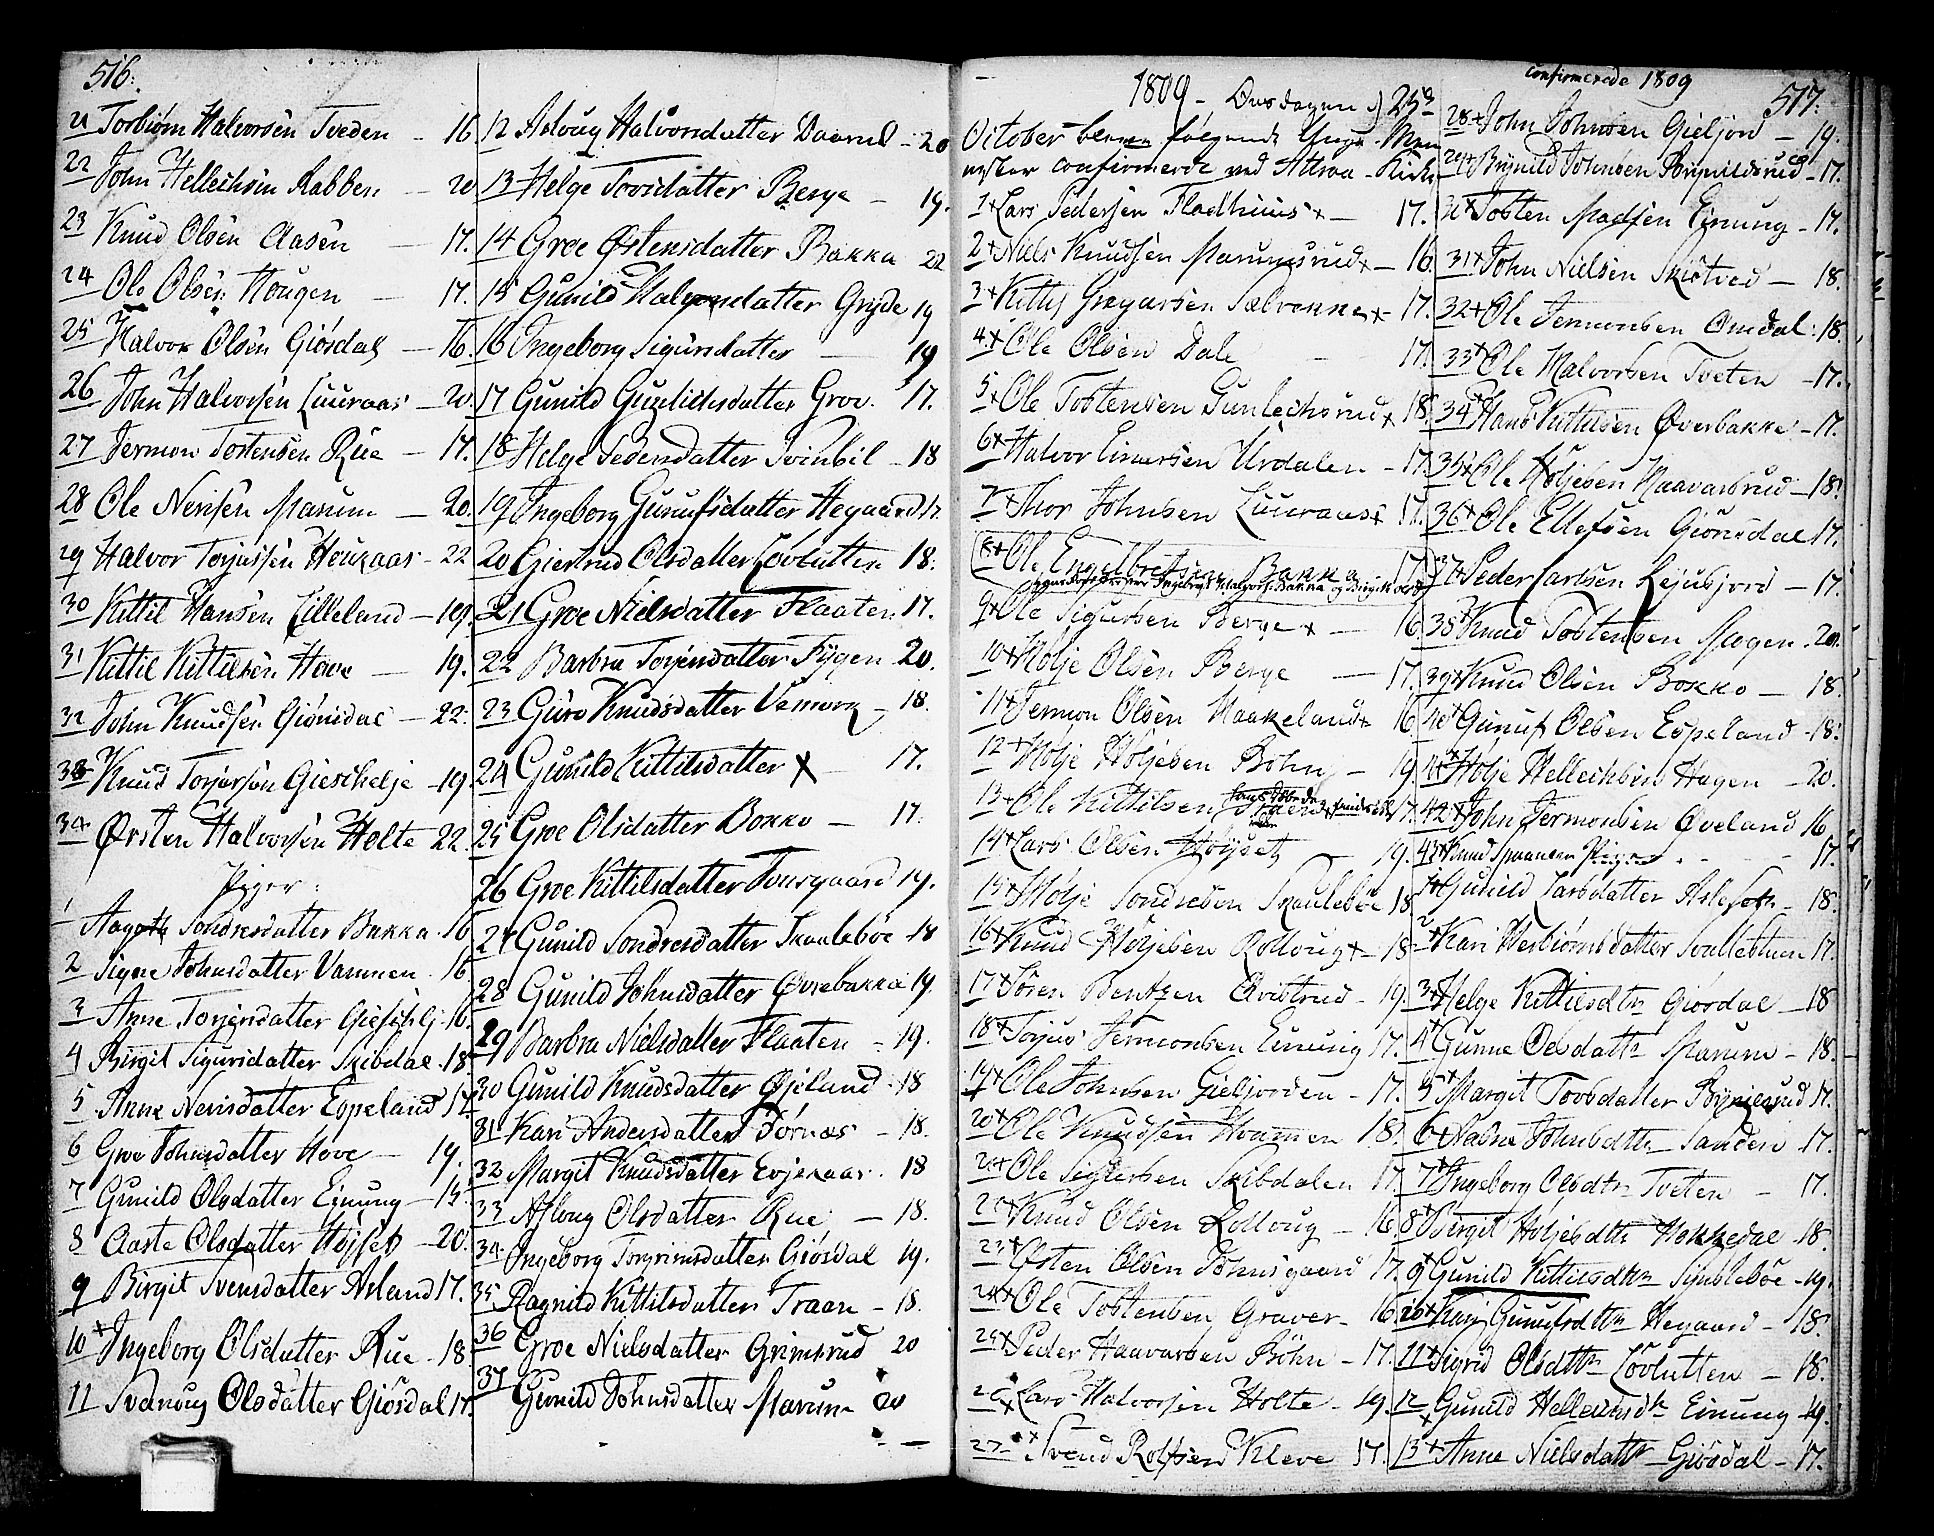 516.
21 Torbiørn Halvorsen Tveden - 16.
22 John Hellechsen Rabben - 20
23 Knud Olsen Aasen - 17.
24 Ole Olsen Hougen - 17.
25 Halvor Olsen Giøsdal - 16.
26 John Halvorsen Luuraas - 20.
27 Jermon Tostensen Rue - 17.
28 Ole Nerisen Marum - 20.
29 Halvor Torjussen Houkaas - 22
30 Kittil Hansen Lilleland - 19.
31 Kittil Kittilsen Hove - 19.
32 John Knudsen Giøsdal - 22.
33 Knud Torjersen Gieschelje - 19.
34 Østen Halvorsen Holte 22.
Piger:
1 Aagoth Sondresdatter Bakka 16
2 Signe Johnsdatter Vammen 16
3 Anne Torjersdatter 16.
4 Birgit Sigursdatter Skibdal 18
5 Anne Nerisdatter Espeland 17
6 Groe Johnsdatter Hove - 19.
7 Gunild Olsdatter Einung - 15.
8 Aaste Olsdatter Høyset - 20.
9 Birgit Svensdatter Asland 17.
10 + Ingeborg Olsdatter Rue - 18
11 Svanoug Olsdatter Giøsdal 17.
12 Asloug Halvorsdatter - 20
13 Helge Tovisdatter Berge - 19.
14 Groe Østensdatter Bakka 22
15 Gunild Halvorsdatter Gryde 19
16 Ingeborg Sigursdatter - 19
17 Gunild Gunlichsdatter Groe. 17.
18 Helge Pedersdatter Svinbil - 18
19 Ingeborg Gunufsdatter Hegaard 17.
20 Giertrud Olsdatter Løvlutten 18.
21 Groe Nielsdatter Flaaten 17.
22 Barbra Torjersdatter Fygen 20.
23 Guro Knudsdatter Vemork - 18.
24 Gunild Kittilsdatter X - 17.
25 Groe Olsdatter Bokko - 17.
26 Groe Kittilsdatter 19.
27 Gunild Sondresdatter Skaaleböe - 18
28 Gunild Johnsdatter Øvrebakka 19.
29 Barbra Nielsdatter Flaaten - 19.
30 Gunild Knudsdatter Øjeland - 18
31 Kari Andersdatter Førnæs - 18.
32 Margit Knudsdatter Evjekaas. 18
33 Asloug Olsdatter Rue - 18.
34. Ingeborg Torgrimsdatter Giøsdal 19.
35 Ragnild Kittilsdatter Traan - 18.
36 Groe Nielsdatter Grimsrud 20
37 Gunild Johnsdatter Marum 20
1809 - Onsdagen d) 25de
October bleven følgende Unge Men
nesker confirmerede ved Attraa - Kirke
1 + Lars Pedersen Fladhuus + - 17.
2 + Niels Knudsen Mammesrud + - 16.
3 + Kittil Gregarsen Sælvenne + 17.
4 + Ole Olsen Dale - 17.
5 + Ole Tostensen Gunlechsrud + 18.
6 + Halvor Einersen Urdalen - 17.
7 + Thor Johnsen Luuraas + 17.
8 + Ole Engelbretsen Bakka 17
9 + Ole Sigursen Berge + - 16
10 + Høljе Olsen Berge - 17.
11 + Jermon Olsen Haakeland + 16
12 + Hølje Høljesen Bøhn - 19.
13 + Ole Kittilsen 17.
14 + Lars Olsen Høyset - 19.
15 + Hølje Sondresen Skaaleböe 18
16 + Knud Høljesen Rolloug + - 18
17 + Sören Bentzen Qvistrud - 19.
18 + Torjus Jermonsen Einung 17.
19 + Ole Johnsen Gieljorden - 17.
20 + Ole Knudsen Hvammen 18.
21 + Ole Sigursen Skibdalen 17.
22 + Knud Olsen Rolloug - 16
23 + Østen Olsen Johnsgaard 17.
24 + Ole Tostensen Graver - 16
25 + Peder Haavarsen Böhn - 17.
26 + Lars Halvorsen Holte - 19.
27 + Svend Rolfsen Kleve 17.
confirmerede 1809
517.
28 + John Johnsen Gieljord - 19.
29 + Brynild Johnsen Brynildsrud - 17.
30 + Tosten Madsen Einung - 17.
31 + John Nielsen Skiötved - 18.
32 + Ole Jermonsen Omdal 18.
33 + Ole Halvorsen Tveten - 17.
34 + Hans Kittilsen Øverbakke - 17.
35 + Ole Høljesen Haavarsrud - 18.
36 + Ole Ellefsen Giönsdal 17.
37 + Peder Larsen Rejusfjord - 17.
38 + Knud Tostensen Mogen. 20.
39 + Knud Olsen Bokko - 18.
40 + Gunuf Olsen Espeland - 18.
41 + Hølje Hellechsen Hagen - 20.
42 + John Jermonsen Øveland 16
43 + Knud - 17.
Piger
1 + Gunild Larsdatter - 18.
2 + Kari Herbiörnsdatter 17.
3 + Helge Kittilsdtr Giösdal - 18
4 + Gunne Olsdattr Marum - 18.
5 + Margit Tovsdatter 17.
6 + Johnsdtr Sanden - 17.
7 + Ingeborg Olsdtr Tveten - 17.
8 + Birgit Høljesdtr Hokkedal - 18.
9 + Gunild Kittilsdtr - 19.
10 + Kari Gunufsdtr Hegaard - 18.
11 + Sigrid Olsdtr Løvlutten - 18.
12 + Gunild Hellechsdtr Einung - 19.
13 + Anne Nielsdattr Giösdal - 17.